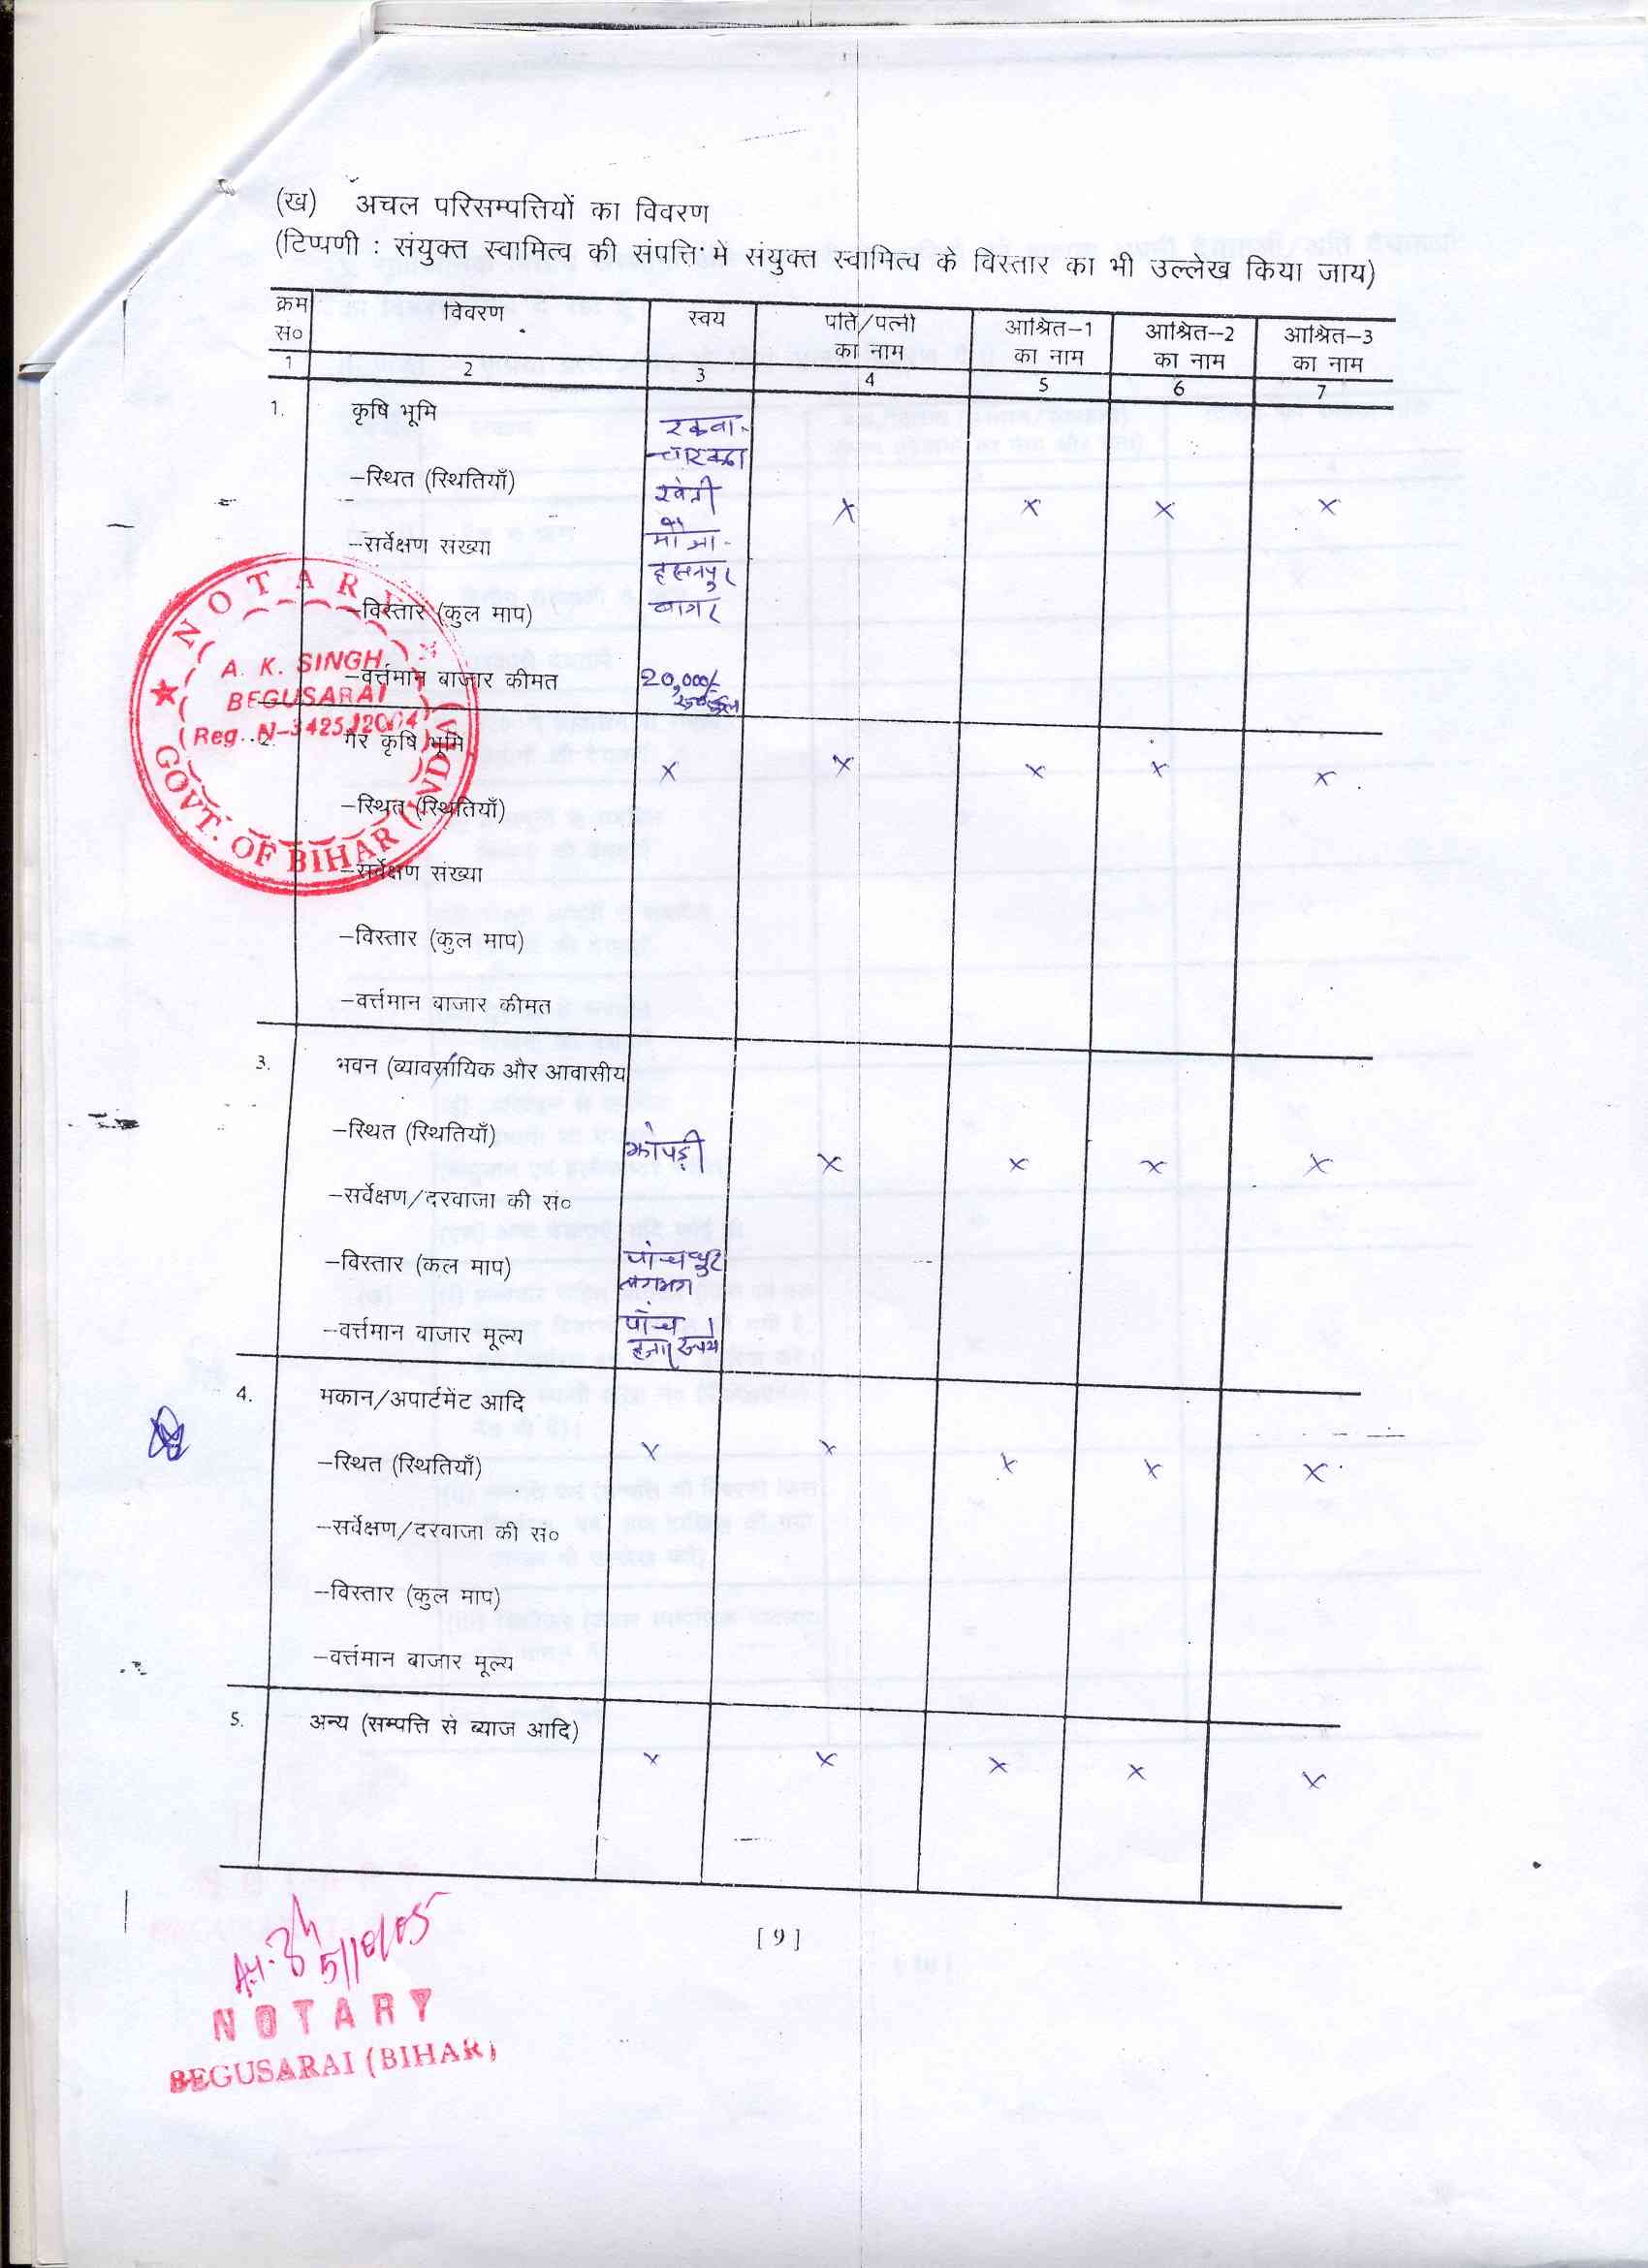 (ख) अचल परिसम्पत्तियों का विवरण
(टिप्पणी : संयुक्त स्वामित्व की संपत्ति में संयुक्त स्वामित्व के विस्तार का भी उल्लेख किया जाय)
क्रम सं० विवरण स्वय पति/पत्नी का नाम आश्रित-1 का नाम आश्रित-2 का नाम आश्रित-3 का नाम
1 2 3 4 5 6 7
1. कृषि भूमि रकवा-
-स्थित (स्थितियाँ)
x x x x
-सर्वेक्षण संख्या मौजा-
हसनपुर
-विस्तार (कुल माप) बागर
-वर्त्तमान बाजार कीमत 20,000/-
NOTARY
A. K. SINGH
BEGUSARAI
(Reg. N-3425/2004)
GOVT. OF BIHAR (INDIA)
2. गैर कृषि भूमि
x x x x x
-स्थित (स्थितियाँ)
-सर्वेक्षण संख्या
-विस्तार (कुल माप)
-वर्त्तमान बाजार कीमत
3. भवन (व्यावसायिक और आवासीय
-स्थित (स्थितियाँ) झोपड़ी x x x x
-सर्वेक्षण/दरवाजा की सं०
-विस्तार (कल माप) पांच धुर
लगभग
-वर्त्तमान बाजार मूल्य पाँच
हजार रूपये
4. मकान/अपार्टमेंट आदि
x x x x x
-स्थित (स्थितियाँ)
-सर्वेक्षण/दरवाजा की सं०
-विस्तार (कुल माप)
-वर्त्तमान बाजार मूल्य
5. अन्य (सम्पत्ति से ब्याज आदि)
x x x x x
[9]
5/10/05
NOTARY
BEGUSARAI (BIHAR)